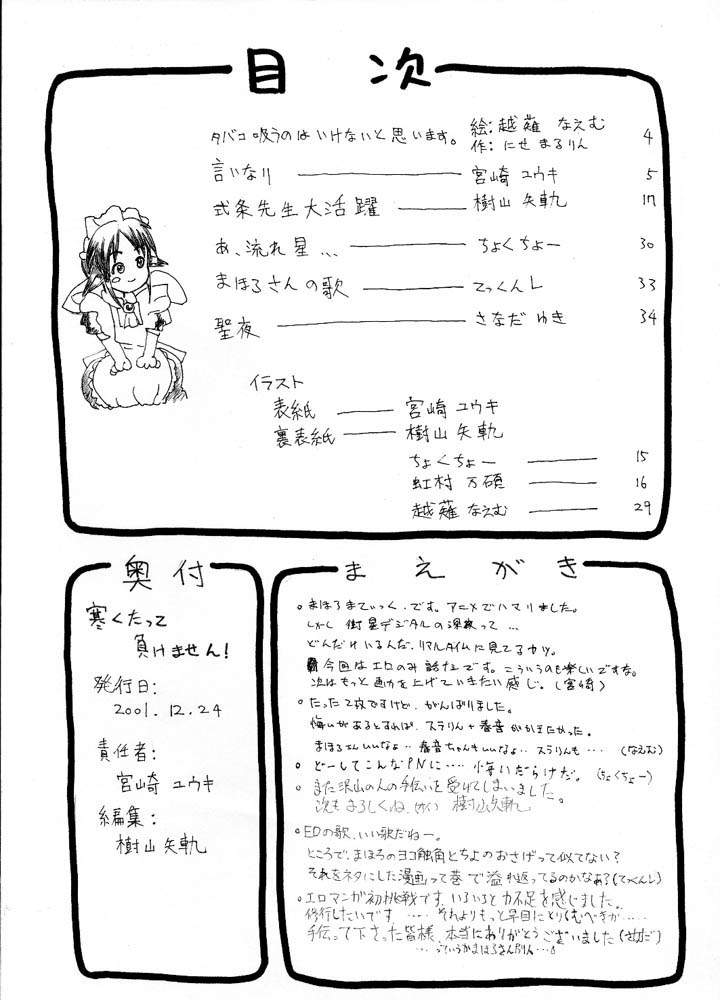 目次
タバコ吸うのはいけないと思います。 絵:越蘿 なえむ 4
作:にせ まるりん
言いなり 宮崎 ユウキ 5
式条先生大活躍 樹山 矢軌 17
あ、流れ星... ちょくちょー 30
まほろさんの歌 てっくんL 33
聖夜 さなだ ゆき 34
イラスト
表紙 宮崎 ユウキ
裏表紙 樹山 矢軌
ちょくちょー 15
虹村 万碩 16
越蘿 なえむ 29
奥付
寒くたって
負けません!
発行日:
2001.12.24
責任者:
宮崎 ユウキ
編集:
樹山 矢軌
まえがき
。まほろまてぃっく.です。アニメでハマりました。
しかし 衛星デジタルの深夜って...
どんだけいるんだ、リアルタイムに見てるヤツ。
今回はエロのみ 話です。こういうのも楽しいですな。
次はもっと画力を上げていきたい感じ。(宮崎)
。たった2枚ですけど、がんばりました。
悔いがあるとすれば、スラりん+春音がかきたかった。
まほろさんいいなょ.. 春音ちゃんもいいなょ.. スラりんも.... (なえむ)
。どーしてこんなPNに.... 悔いだらけだ。(ちょくちょー)
。また沢山の人の手伝いを受けてしまいました。
次もよろしくね、 樹山矢軌
。EDの歌、いい歌だねー。
ところで、まほろのヨコ触角とちよのおさげって似てない?
それをネタにした漫画って巷で溢れ返ってるのかなあ?(てっくんL)
。エロマンガ初挑戦です。いろいろと力不足を感じました。
修行したいです .... それよりもっと早目にとりくむべきが.....
手伝って下さった皆様、本当にありがとうございました(さなだ)
...っていうかまほろさん